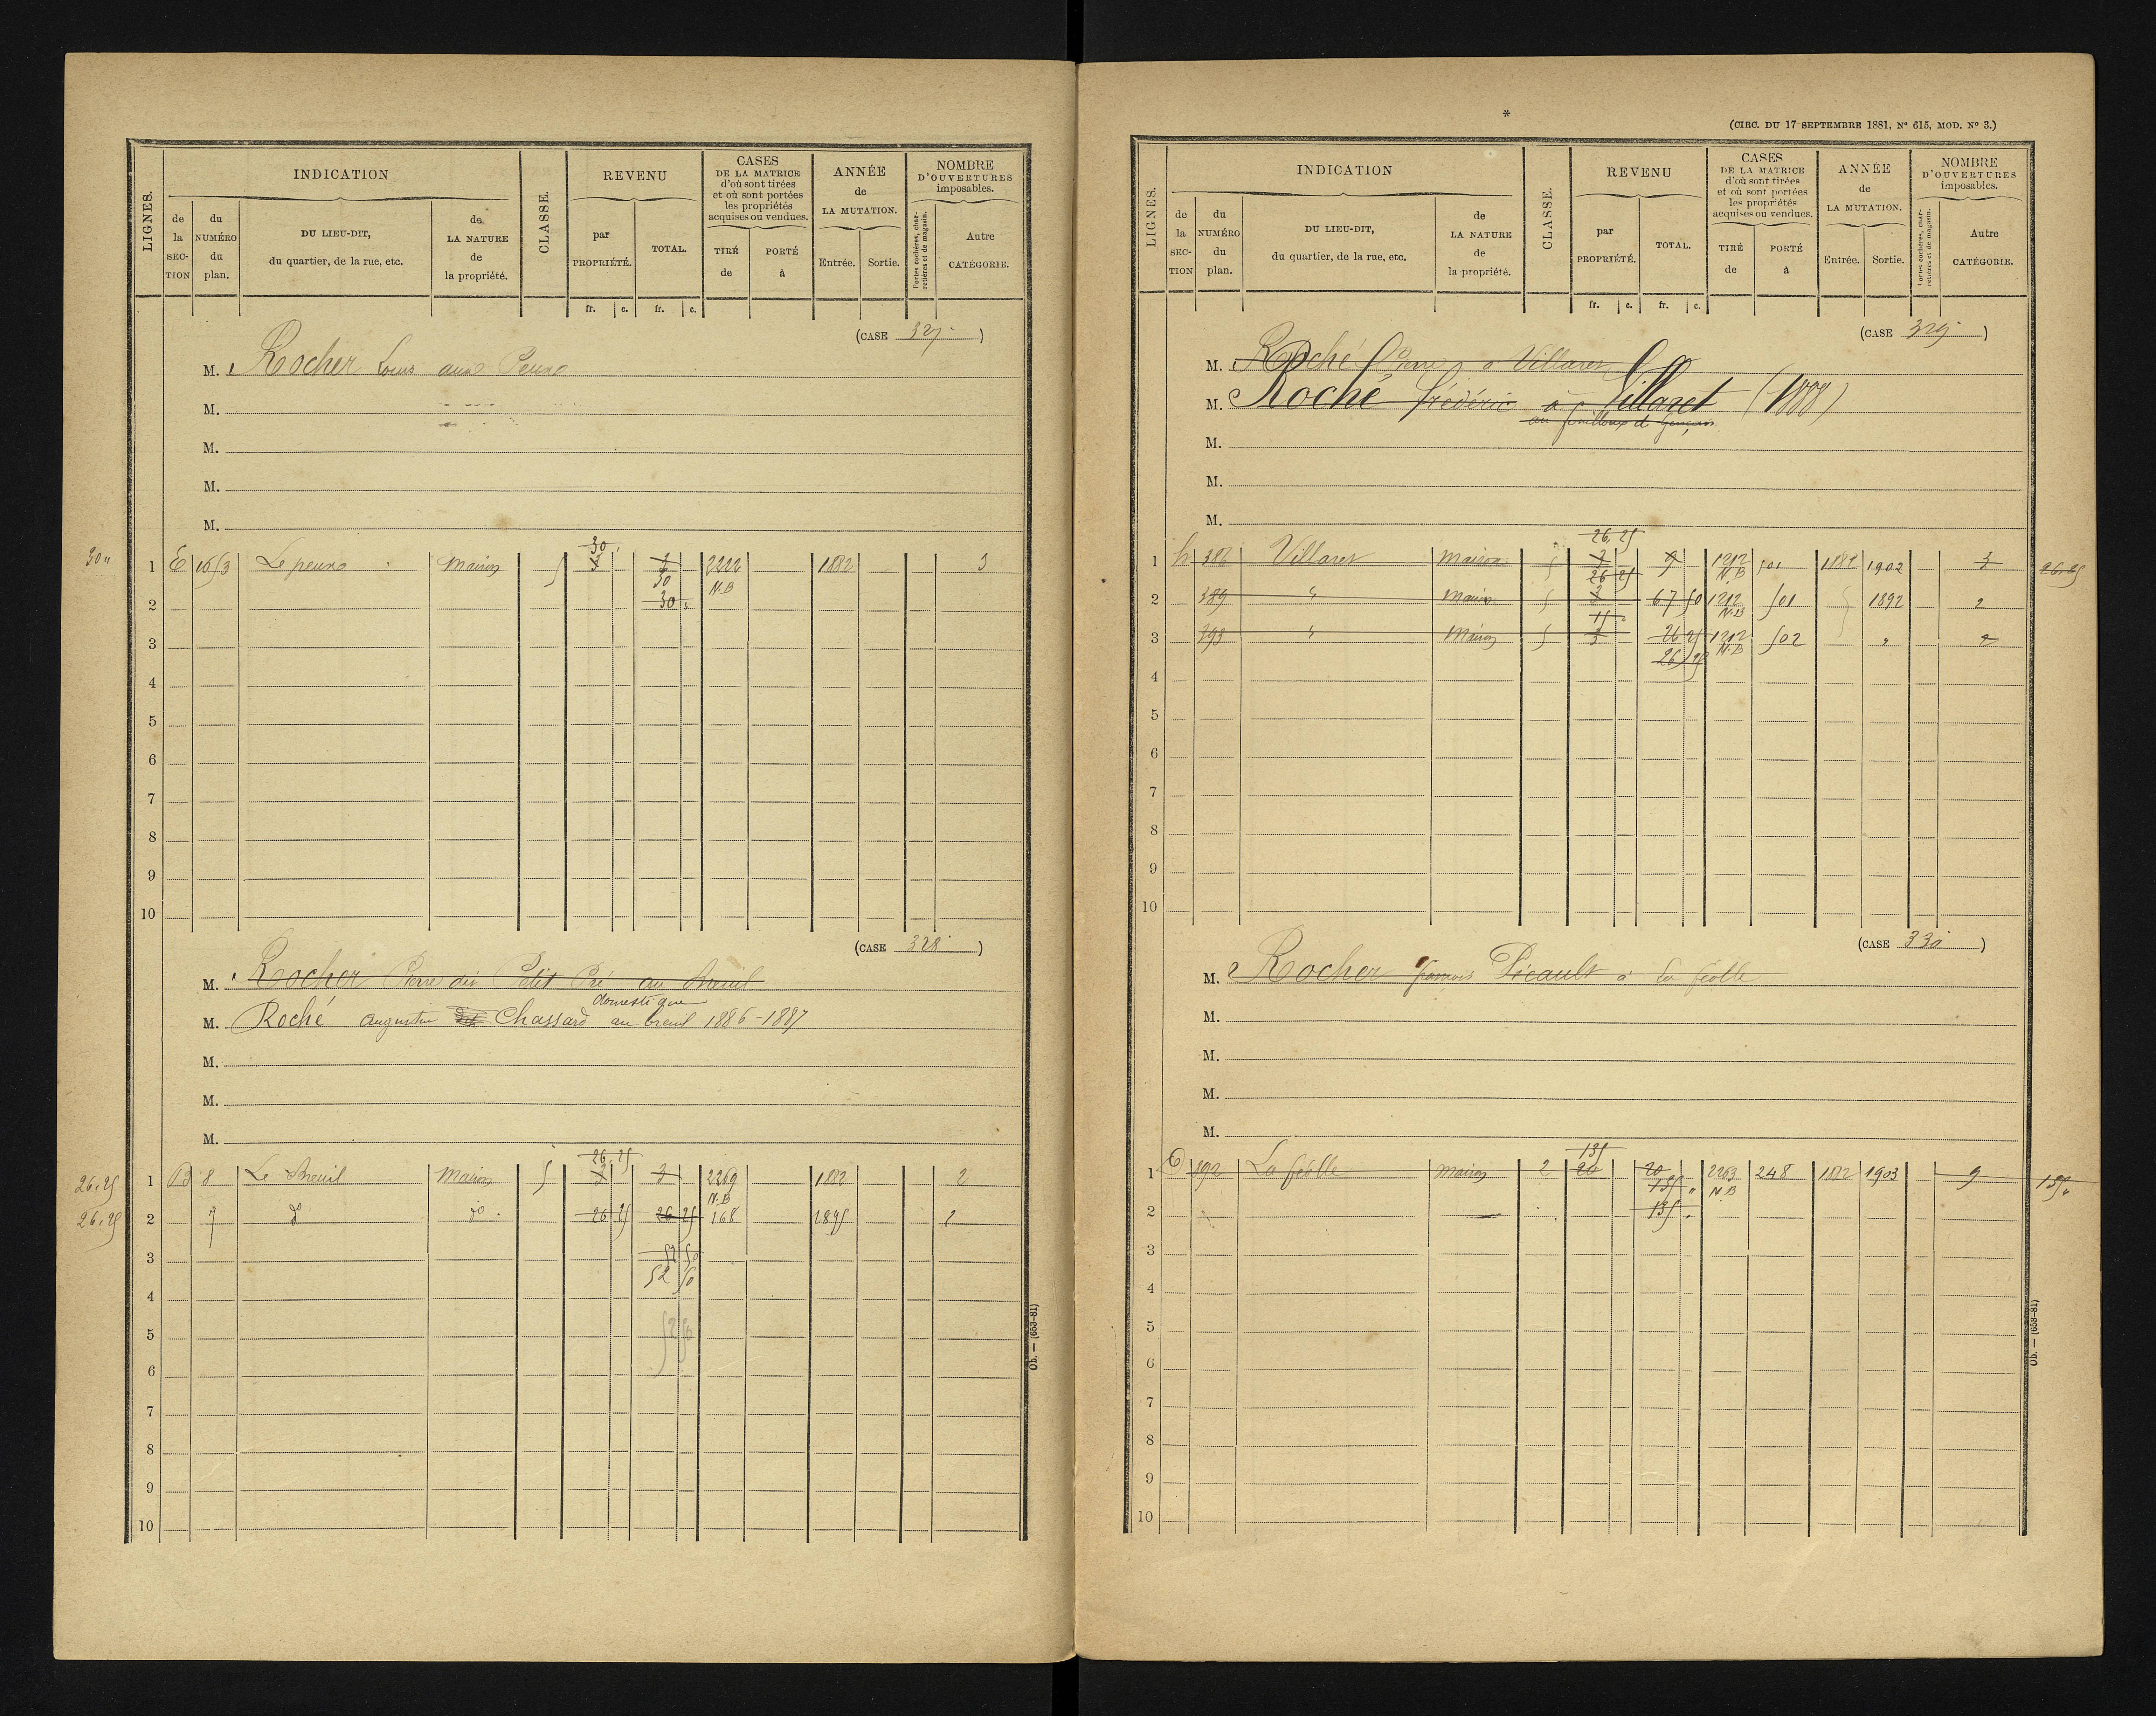 LIGNES.
INDICATION
de la SECTION
du NUMÉRO du plan.
DU LIEU-DIT, du quartier, de la rue, etc.
de LA NATURE de la propriété.
CLASSE.
REVENU
par PROPRIÉTÉ.
TOTAL.
CASES DE LA MATRICE d'où sont tirées et où sont portées les propriétés acquises ou vendues.
TIRÉ de
PORTÉ à
ANNÉE de LA MUTATION.
Entrée.
Sortie.
NOMBRE D'OUVERTURES imposables.
Portes cochères, charretières et de magasin.
Autre CATÉGORIE.
fr. c. fr. c.
(CASE 327)
M. Rocher Louis aux Peux
M.
M.
M.
M.
30 "
30
1 E 1653 Le peux maison 5 3 3 2222 1882 3
30 N.B
2 30
3
4
5
6
7
8
9
10
(CASE 328)
M. Rocher Pierre dit Petit Pré au Breuil
domestique
M. Roché Augustin Chassard au breuil 1886-1887
M.
M.
M.
26.25
26.25 1 B 8 Le Breuil maison 5 3 3 2269 1882 2
N.B
26.25 2 7 do do 26 25 26 25 168 1895 2
3 52 50
52 50
4
5 52 50
6
7
8
9
10
Ob. — (653-81)
*
(CIRC. DU 17 SEPTEMBRE 1881, N° 615, MOD. N° 3.)
LIGNES.
INDICATION
de la SECTION
du NUMÉRO du plan.
DU LIEU-DIT, du quartier, de la rue, etc.
de LA NATURE de la propriété.
CLASSE.
REVENU
par PROPRIÉTÉ.
TOTAL.
CASES DE LA MATRICE d'où sont tirées et où sont portées les propriétés acquises ou vendues.
TIRÉ de
PORTÉ à
ANNÉE de LA MUTATION.
Entrée.
Sortie.
NOMBRE D'OUVERTURES imposables.
Portes cochères, charretières et de magasin.
Autre CATÉGORIE.
fr. c. fr. c.
(CASE 329)
M. Roché Pierre à Villaret
M. Roché Frédéric à Villaret (1888)
M.
M.
M.
26.25
1 h 386 Villaret maison 5 3 9 1212 501 1882 1902 3 26.25
26 25 N.B
2 389 " maison 5 3 67 50 1212 501 1892 2
15 N.B
3 393 " maison 5 3 26 25 1212 502 " 2
26 25 N.B
4
5
6
7
8
9
10
(CASE 330)
M. Rocher françois Picault à La féolle
M.
M.
M.
M.
135
1 C 192 La féolle maison 2 20 20 2263 248 1882 1903 9 135 "
135 " N.B
2 135
3
4
5
6
7
8
9
10
Ob. — (653-81)